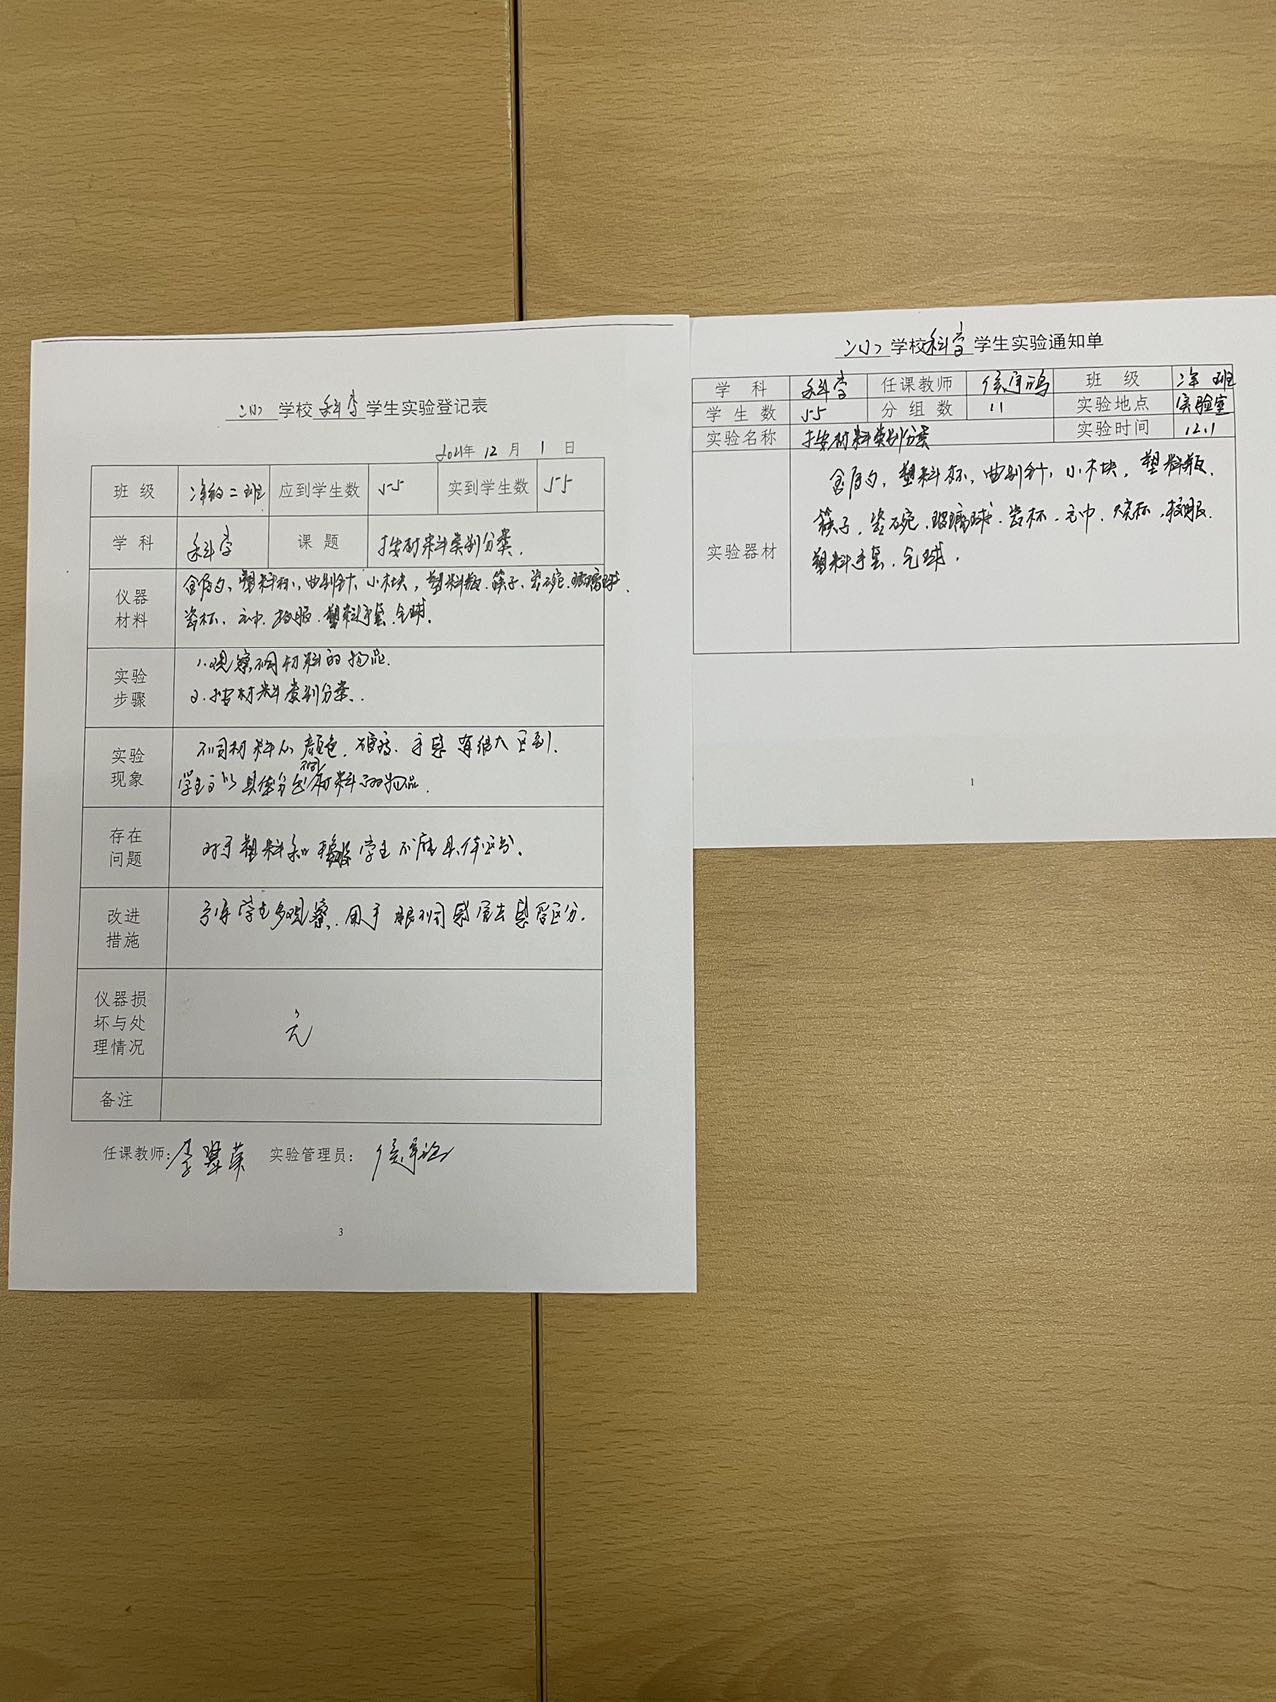 学校 科学 学生实验登记表
2021年 12 月 1 日
班 级 二班 应到学生数 55 实到学生数 55
学 科 科学 课 题 按材料类别分类.
仪器
材料
塑料杯, 曲别针, 小木块, 塑料瓶. 筷子. 瓷碗. 玻璃球.
瓷杯. 毛巾. 校服. 塑料手套. 气球.
实验
步骤
1.观察不同材料的物品.
2.按材料类别分类.
实验
现象
不同材料从颜色. 手感 有很大区别.
学生可以具体分 不同材料 的物品.
存在
问题
对于塑料和 学生不 具体区分.
改进
措施
学生多观察. 用手 感 区分.
仪器损
坏与处
理情况
无
备注
任课教师: 实验管理员:
3
学校 科学 学生实验通知单
学 科 科学 任课教师 班 级 班
学 生 数 55 分 组 数 11 实验地点 实验室
实验名称 按材料类别分类 实验时间 12.1
实验器材
塑料杯, 曲别针, 小木块, 塑料瓶.
筷子, 瓷碗, 玻璃球, 瓷杯, 毛巾, 烧杯, 校服.
塑料手套. 气球.
1